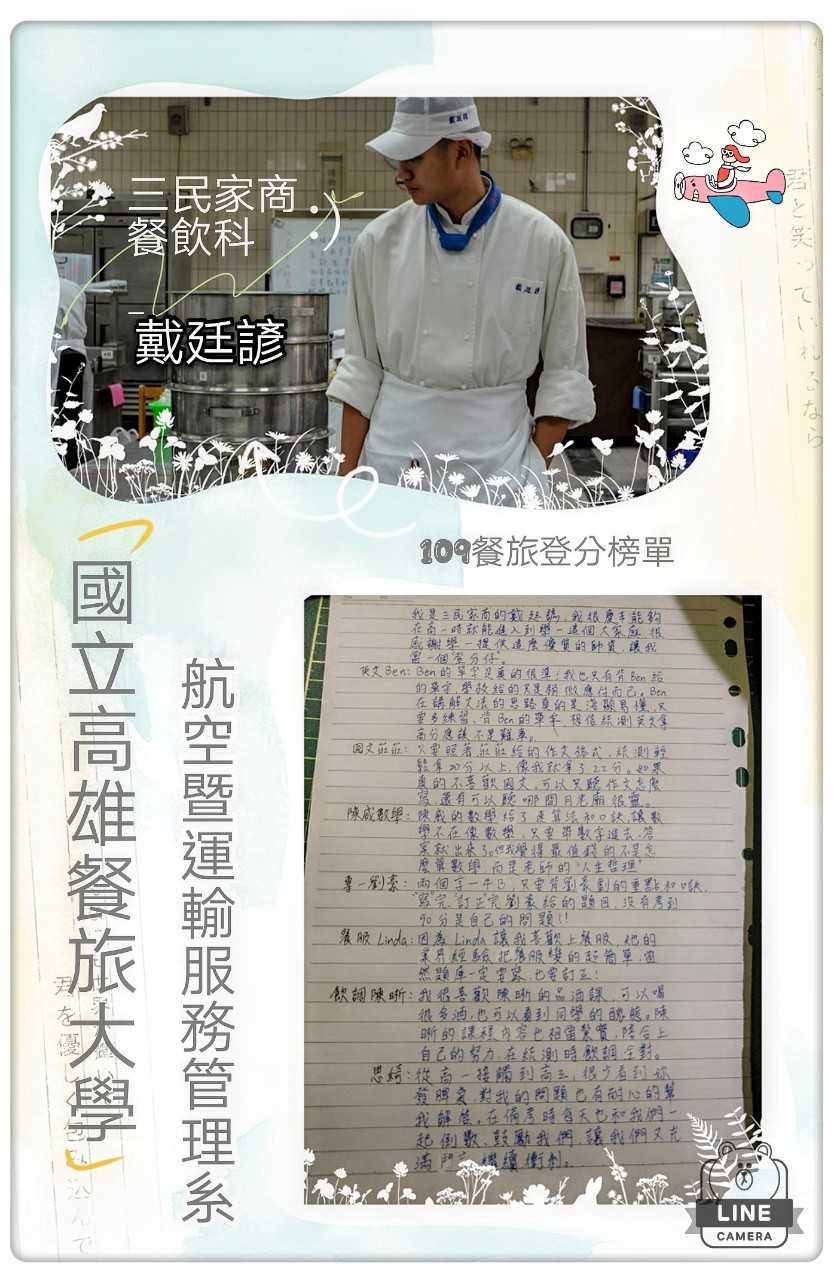 三民家商
餐飲科
:)
戴廷諺
109餐旅登分榜單
「國立高雄餐旅大學」
航空暨運輸服務管理系
我是三民家商的戴廷諺,我很慶幸能夠
在高一時就能進入到學一這個大家庭,很
感謝學一提供這麼優質的師資,讓我
當一個"登分仔"。
英文Ben:Ben的單字是真的很準!我也只有背Ben給
的單字,學校給的只是稍微應付而已。Ben
在講解文法的思路真的是淺顯易懂,只
要多練習,背Ben的單字,相信統測英文拿
高分應該不是難事。
國文莊莊:只要照著莊莊給的作文格式,統測輕
鬆拿20分以上,像我就拿了22分。如果
真的不喜歡國文,可以只聽作文怎麼
寫,還有可以聽哪間月老廟很靈。
陳威數學:陳威的數學給了速算法和口訣,讓數
學不在像數學,只要帶數字進去,答
案就出來了。但我覺得最值錢的不是怎
麼算數學,而是老師的"人生哲理"
專一劉豪:兩個字-牛B,只要背劉豪劃的重點和口訣,
"寫"完,"訂正"完劉豪給的題目,沒有考到
90分是自己的問題!!
餐服Linda:因為Linda讓我喜歡上餐服,她的
業界經驗把餐服變的超簡單,當
然題庫一定要寫,也要訂正!
飲調陳晰:我很喜歡陳晰的品酒課,可以喝
很多酒,也可以看到同學的醜態。陳
晰的課程內容也相當紮實,陪合上
自己的努力,在統測時飲調全對。
思綺:從高一接觸到高三,很少看到妳
發脾氣,對我的問題也有耐心的幫
我解答。在備考時每天也和我們一
起倒數、鼓勵我們,讓我們又充
滿鬥志繼續衝刺。
君と笑っていれるなら
君を優しく包み込んで
LINE
CAMERA